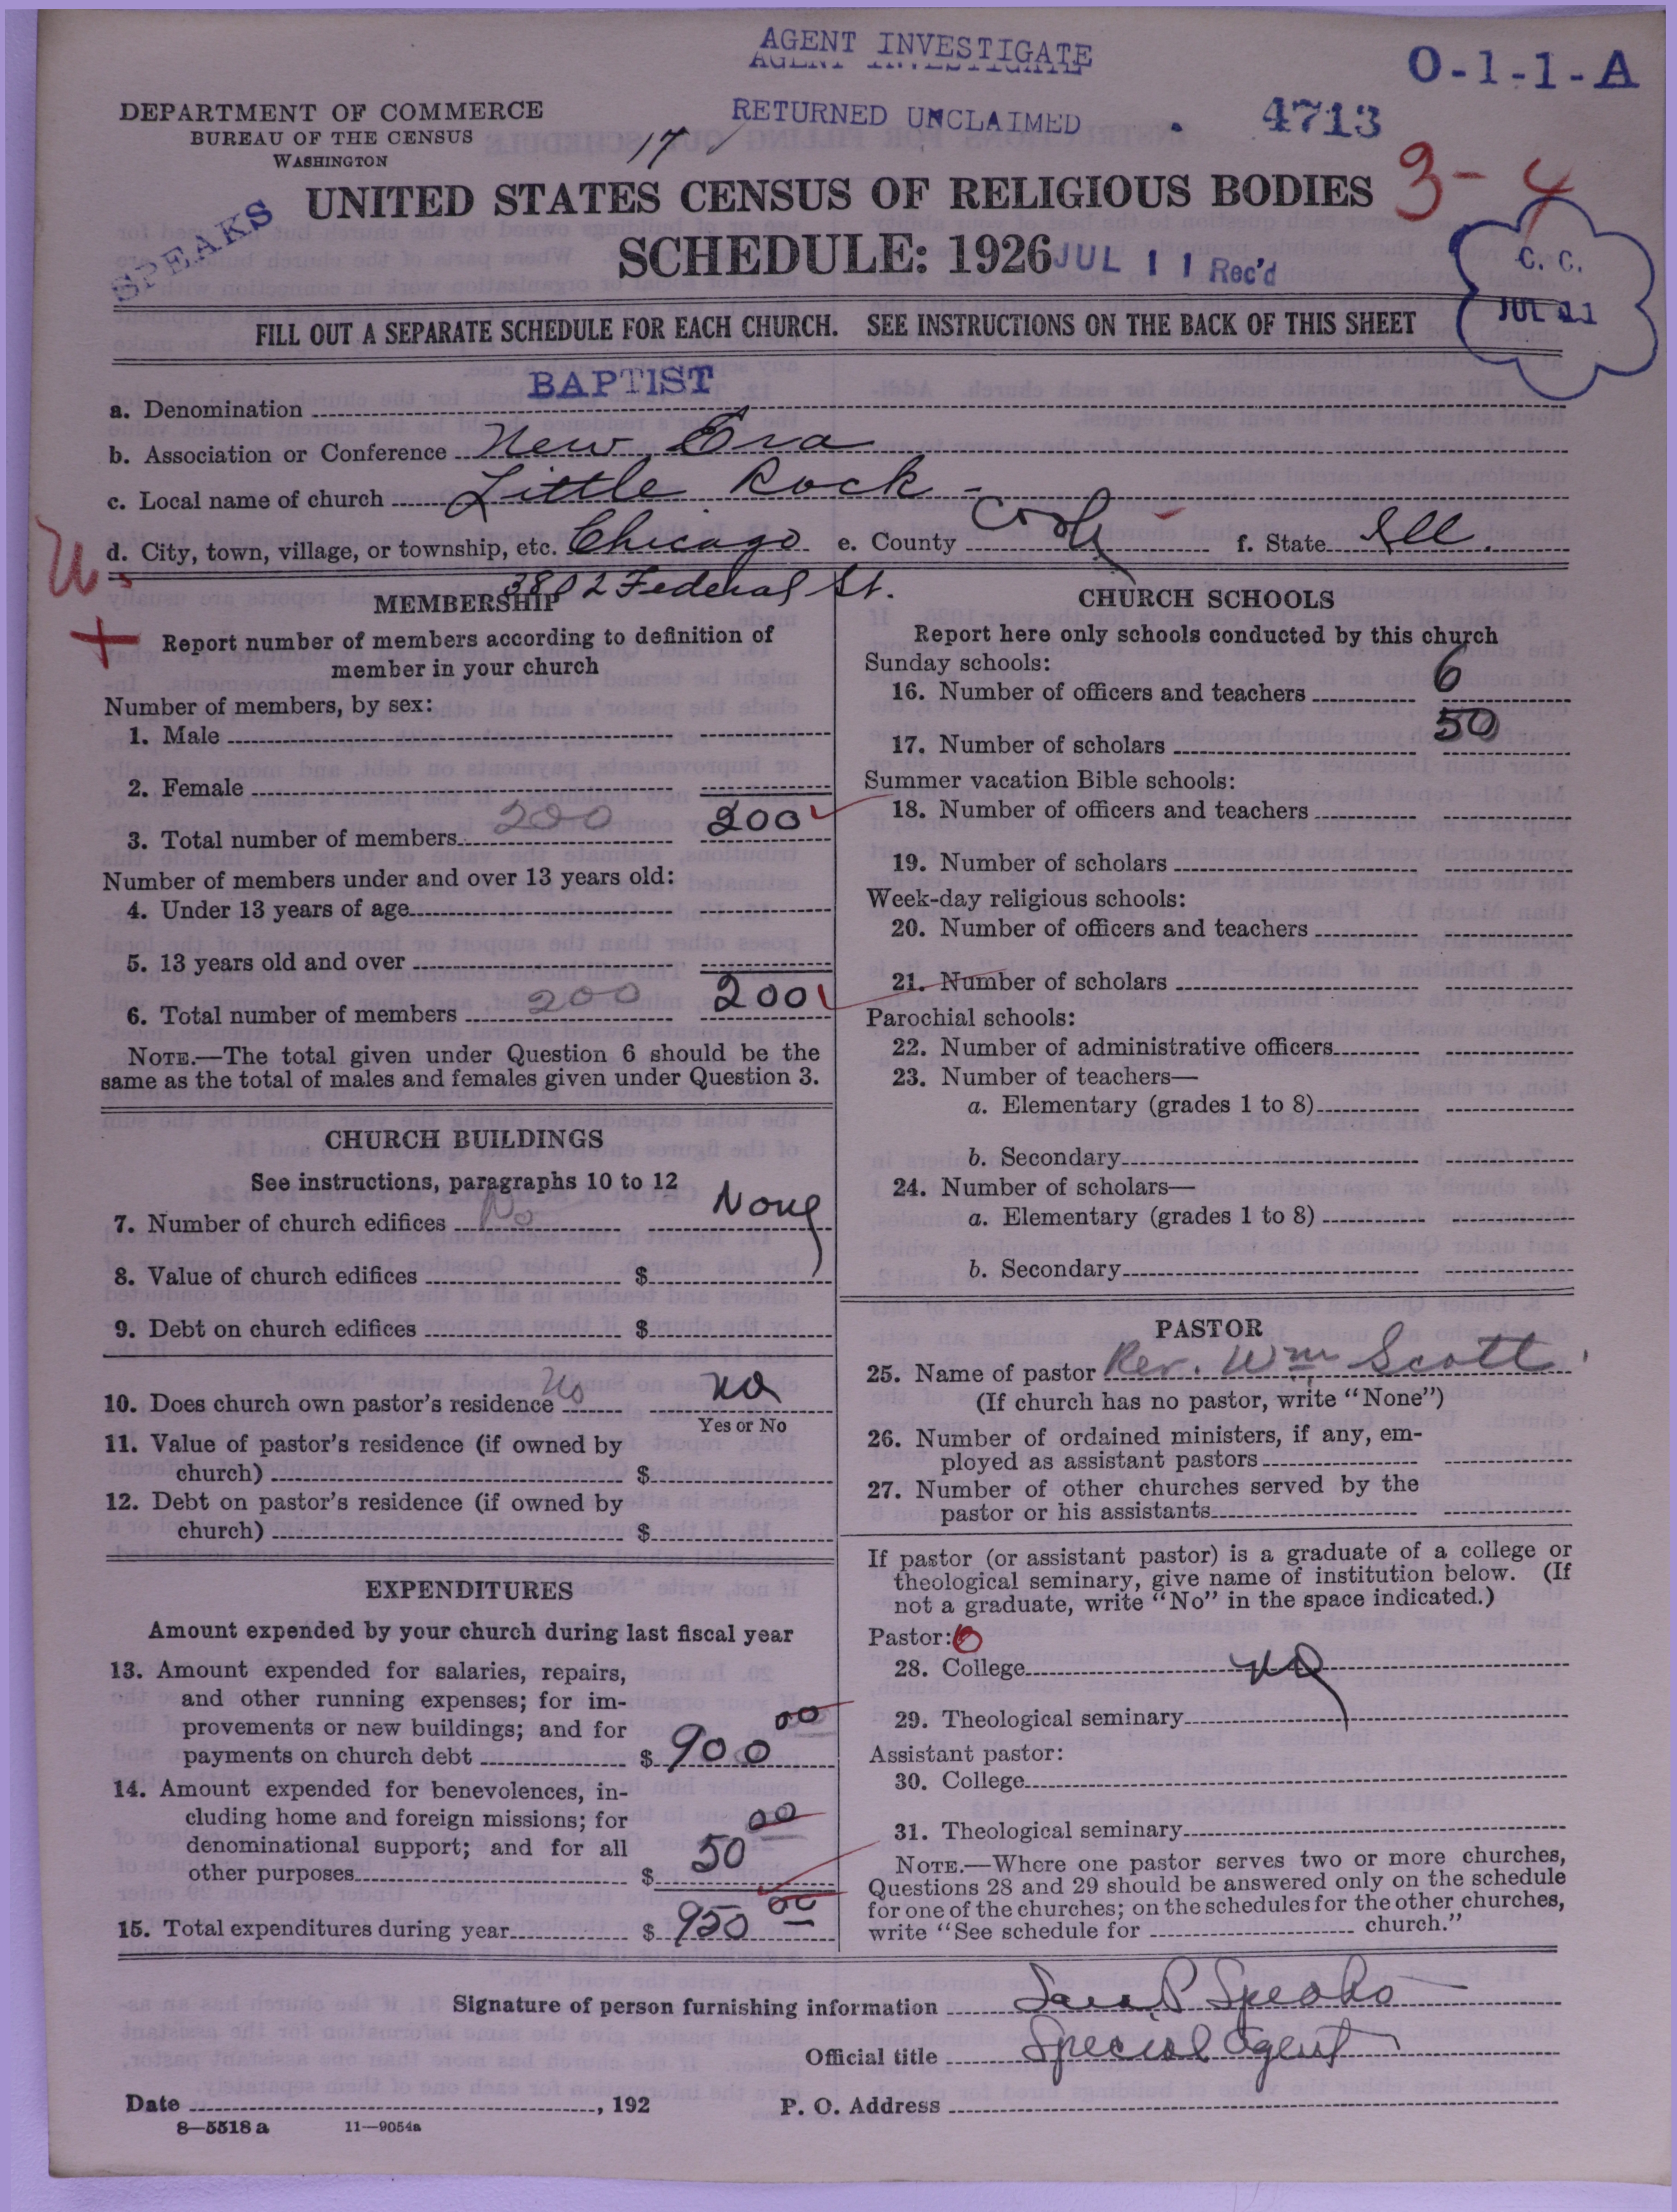 AGENT INVESTIGATE
O-1-1-A
RETURNED UNCLAIMED
4713
DEPARTMENT OF COMMERCE
BUREAU OF THE CENSUS
WASHINGTON
17
3-4
SPEAKS
UNITED STATES CENSUS OF RELIGIOUS BODIES
SCHEDULE: 1926
JUL 11 Rec'd
C. C.
JUL 11
FILL OUT A SEPARATE SCHEDULE FOR EACH CHURCH. SEE INSTRUCTIONS ON THE BACK OF THIS SHEET
a. Denomination BAPTIST
b. Association or Conference New Era
c. Local name of church Little Rock -
d. City, town, village, or township, etc. Chicago e. County Cook f. State Ill.
3802 Federal St.
MEMBERSHIP
Report number of members according to definition of
member in your church
Number of members, by sex:
1. Male
2. Female
3. Total number of members 200 200
Number of members under and over 13 years old:
4. Under 13 years of age
5. 13 years old and over
6. Total number of members 200 200
NOTE.—The total given under Question 6 should be the
same as the total of males and females given under Question 3.
CHURCH BUILDINGS
See instructions, paragraphs 10 to 12
7. Number of church edifices No None
8. Value of church edifices $
9. Debt on church edifices $
10. Does church own pastor's residence No No
Yes or No
11. Value of pastor's residence (if owned by
church) $
12. Debt on pastor's residence (if owned by
church) $
EXPENDITURES
Amount expended by your church during last fiscal year
13. Amount expended for salaries, repairs,
and other running expenses; for im-
provements or new buildings; and for
payments on church debt $ 900 00
14. Amount expended for benevolences, in-
cluding home and foreign missions; for
denominational support; and for all
other purposes $ 50 00
15. Total expenditures during year $ 950 00
CHURCH SCHOOLS
Report here only schools conducted by this church
Sunday schools:
16. Number of officers and teachers 6
17. Number of scholars 50
Summer vacation Bible schools:
18. Number of officers and teachers
19. Number of scholars
Week-day religious schools:
20. Number of officers and teachers
21. Number of scholars
Parochial schools:
22. Number of administrative officers
23. Number of teachers—
a. Elementary (grades 1 to 8)
b. Secondary
24. Number of scholars—
a. Elementary (grades 1 to 8)
b. Secondary
PASTOR
25. Name of pastor Rev. Wm Scott
(If church has no pastor, write "None")
26. Number of ordained ministers, if any, em-
ployed as assistant pastors
27. Number of other churches served by the
pastor or his assistants
If pastor (or assistant pastor) is a graduate of a college or
theological seminary, give name of institution below. (If
not a graduate, write "No" in the space indicated.)
Pastor: 0
28. College No
29. Theological seminary
Assistant pastor:
30. College
31. Theological seminary
NOTE.—Where one pastor serves two or more churches,
Questions 28 and 29 should be answered only on the schedule
for one of the churches; on the schedules for the other churches,
write "See schedule for church."
Signature of person furnishing information Sara P Speaks
Official title Special Agent
Date , 192
P. O. Address
8—5518 a 11—9054a